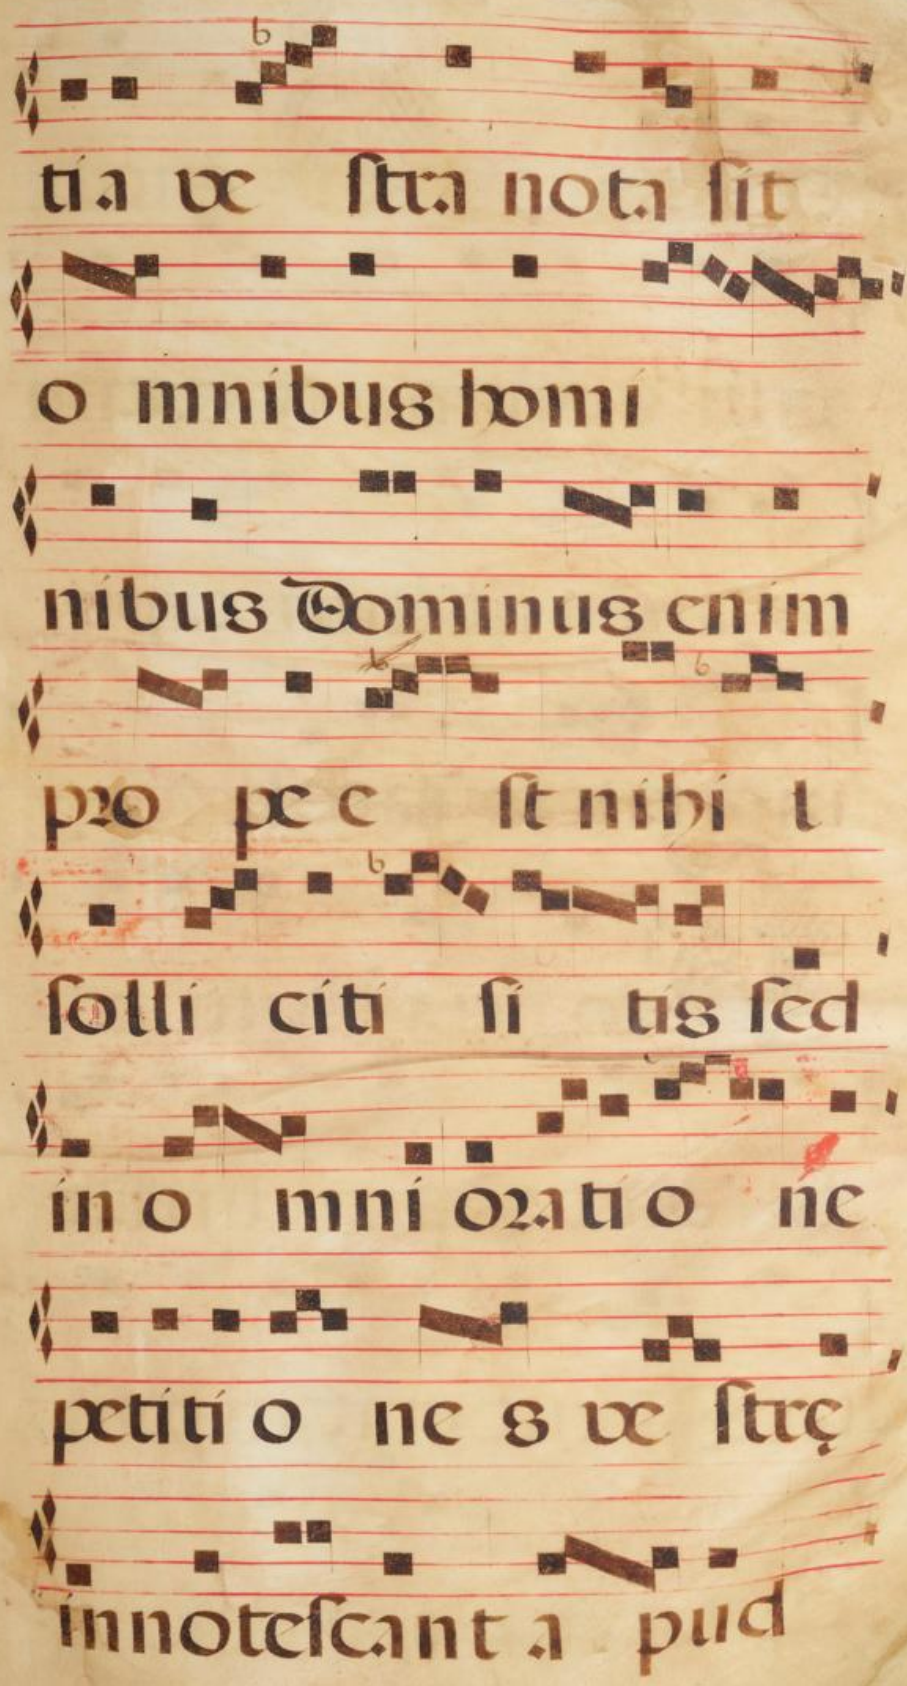 tia ve ſtra nota ſit
o mnibus homi
nibus Dominus enim
pro pe e ſt nihi l
ſolli citi ſi tis ſed
in o mni oratio ne
petiti o ne s ve ſtrę
innoteſcant a pud